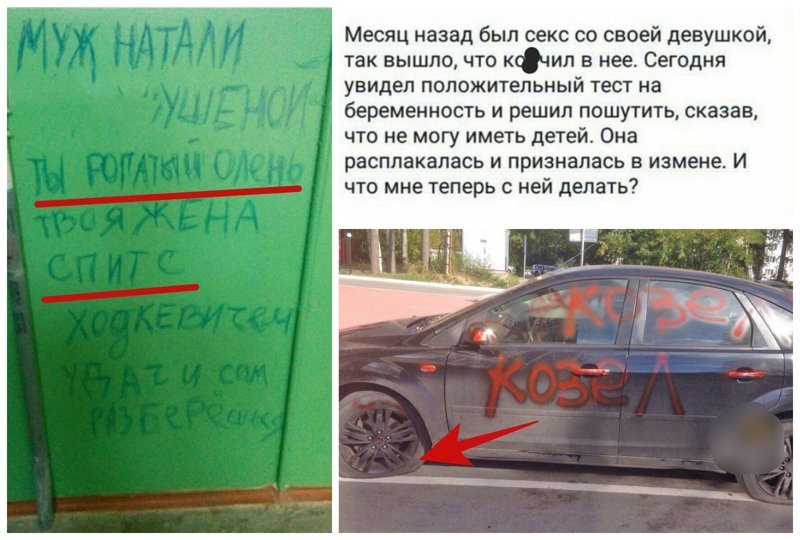 МУЖ НАТАЛИ
УШЕНОЙ
ТЫ РОГАТЫЙ ОЛЕНЬ
ТВОЯ ЖЕНА
СПИТ С
ХОДКЕВИЧЕМ
УДАЧИ сам
РАЗБЕРЁШЬСЯ
Месяц назад был секс со своей девушкой,
так вышло, что ко чил в нее. Сегодня
увидел положительный тест на
беременность и решил пошутить, сказав,
что не могу иметь детей. Она
расплакалась и призналась в измене. И
что мне теперь с ней делать?
КОЗЕЛ
КОЗЕЛ